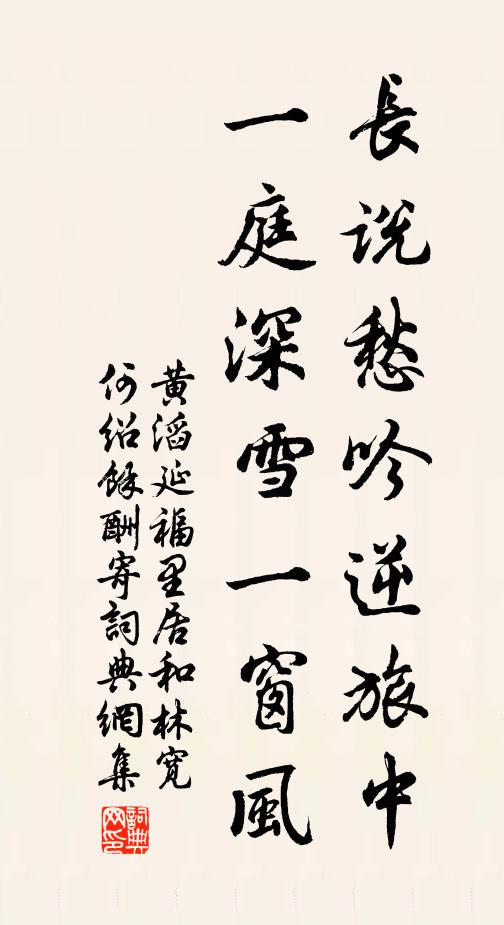 長說愁吟逆旅中
一庭深雪一窗風
黃滔延福里居和林寬
何紹餘酬寄詞典網集
詞典
網印